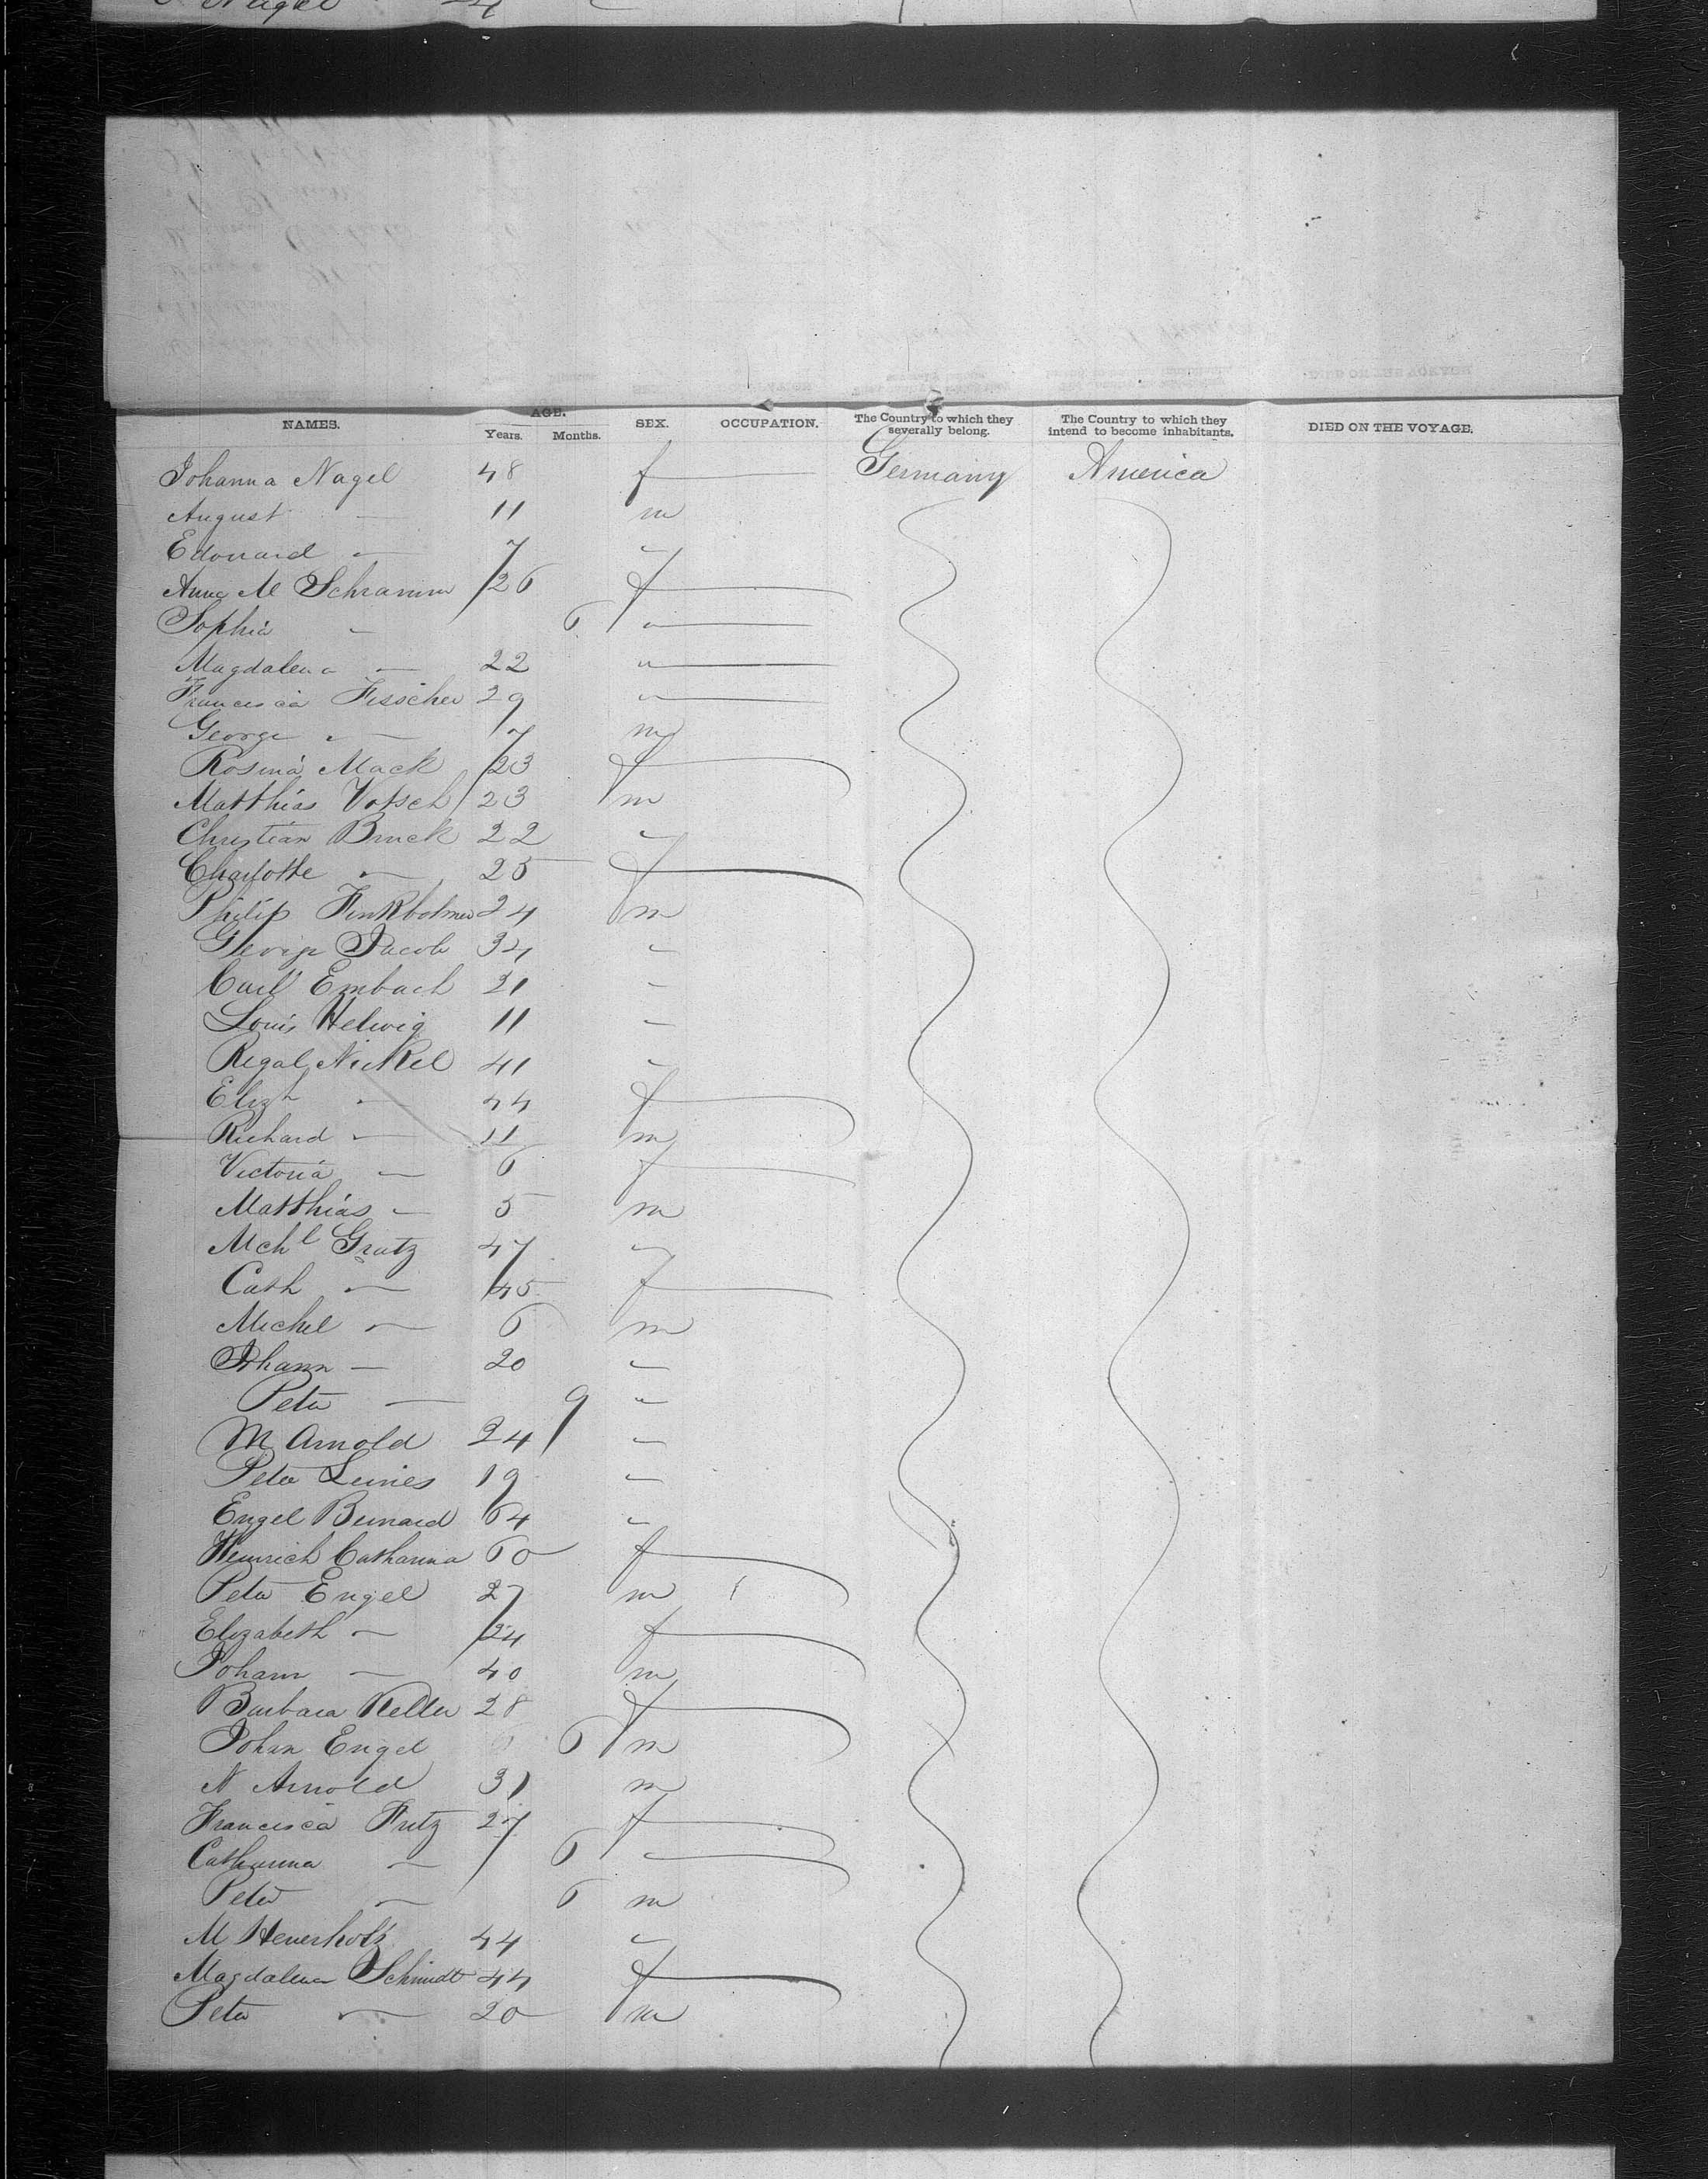 Nagel 24
NAMES. AGE. Years. Months. SEX. OCCUPATION. The Country to which they severally belong. The Country to which they intend to become inhabitants. DIED ON THE VOYAGE.
Johanna Nagel 48 f — Germany America
August — 11 m
Edouard — 7 "
Anna M Schramm 26 f —
Sophia — 6 " —
Magdalena — 22 " —
Francisca Fisscher 29 " —
George " — 7 m
Rosina Mack 23 f
Matthias Votsch 23 m
Christian Bruck 22 "
Charlotte — 25 f
Philip 24 m
George Jacob 34 "
Carl Embach 21 "
Louis Helwig 11 "
Regal Nickel 41 "
Elizh — 44 f
Richard — 11 m
Victoria — 6 f
Matthias — 5 m
Mchl Gratz 47 "
Cath — 45 f —
Michel — 6 m
Johann — 20 "
Peter — 9 "
M Arnold 24 "
Peter 19 "
Engel Bernard 64 "
Heinrich Catharina 60 f
Peter Engel 27 m
Elizabeth — 24 f
Johann — 40 m
Barbara Keller 28 f
Johan Engel 6 m
N Arnold 31 m
Francisca Fritz 27 f
Catharina — 6 "
Peter — 6 m
M Heuerholz 44 "
Magdalena Schmidt 44 f
Peter — 20 m